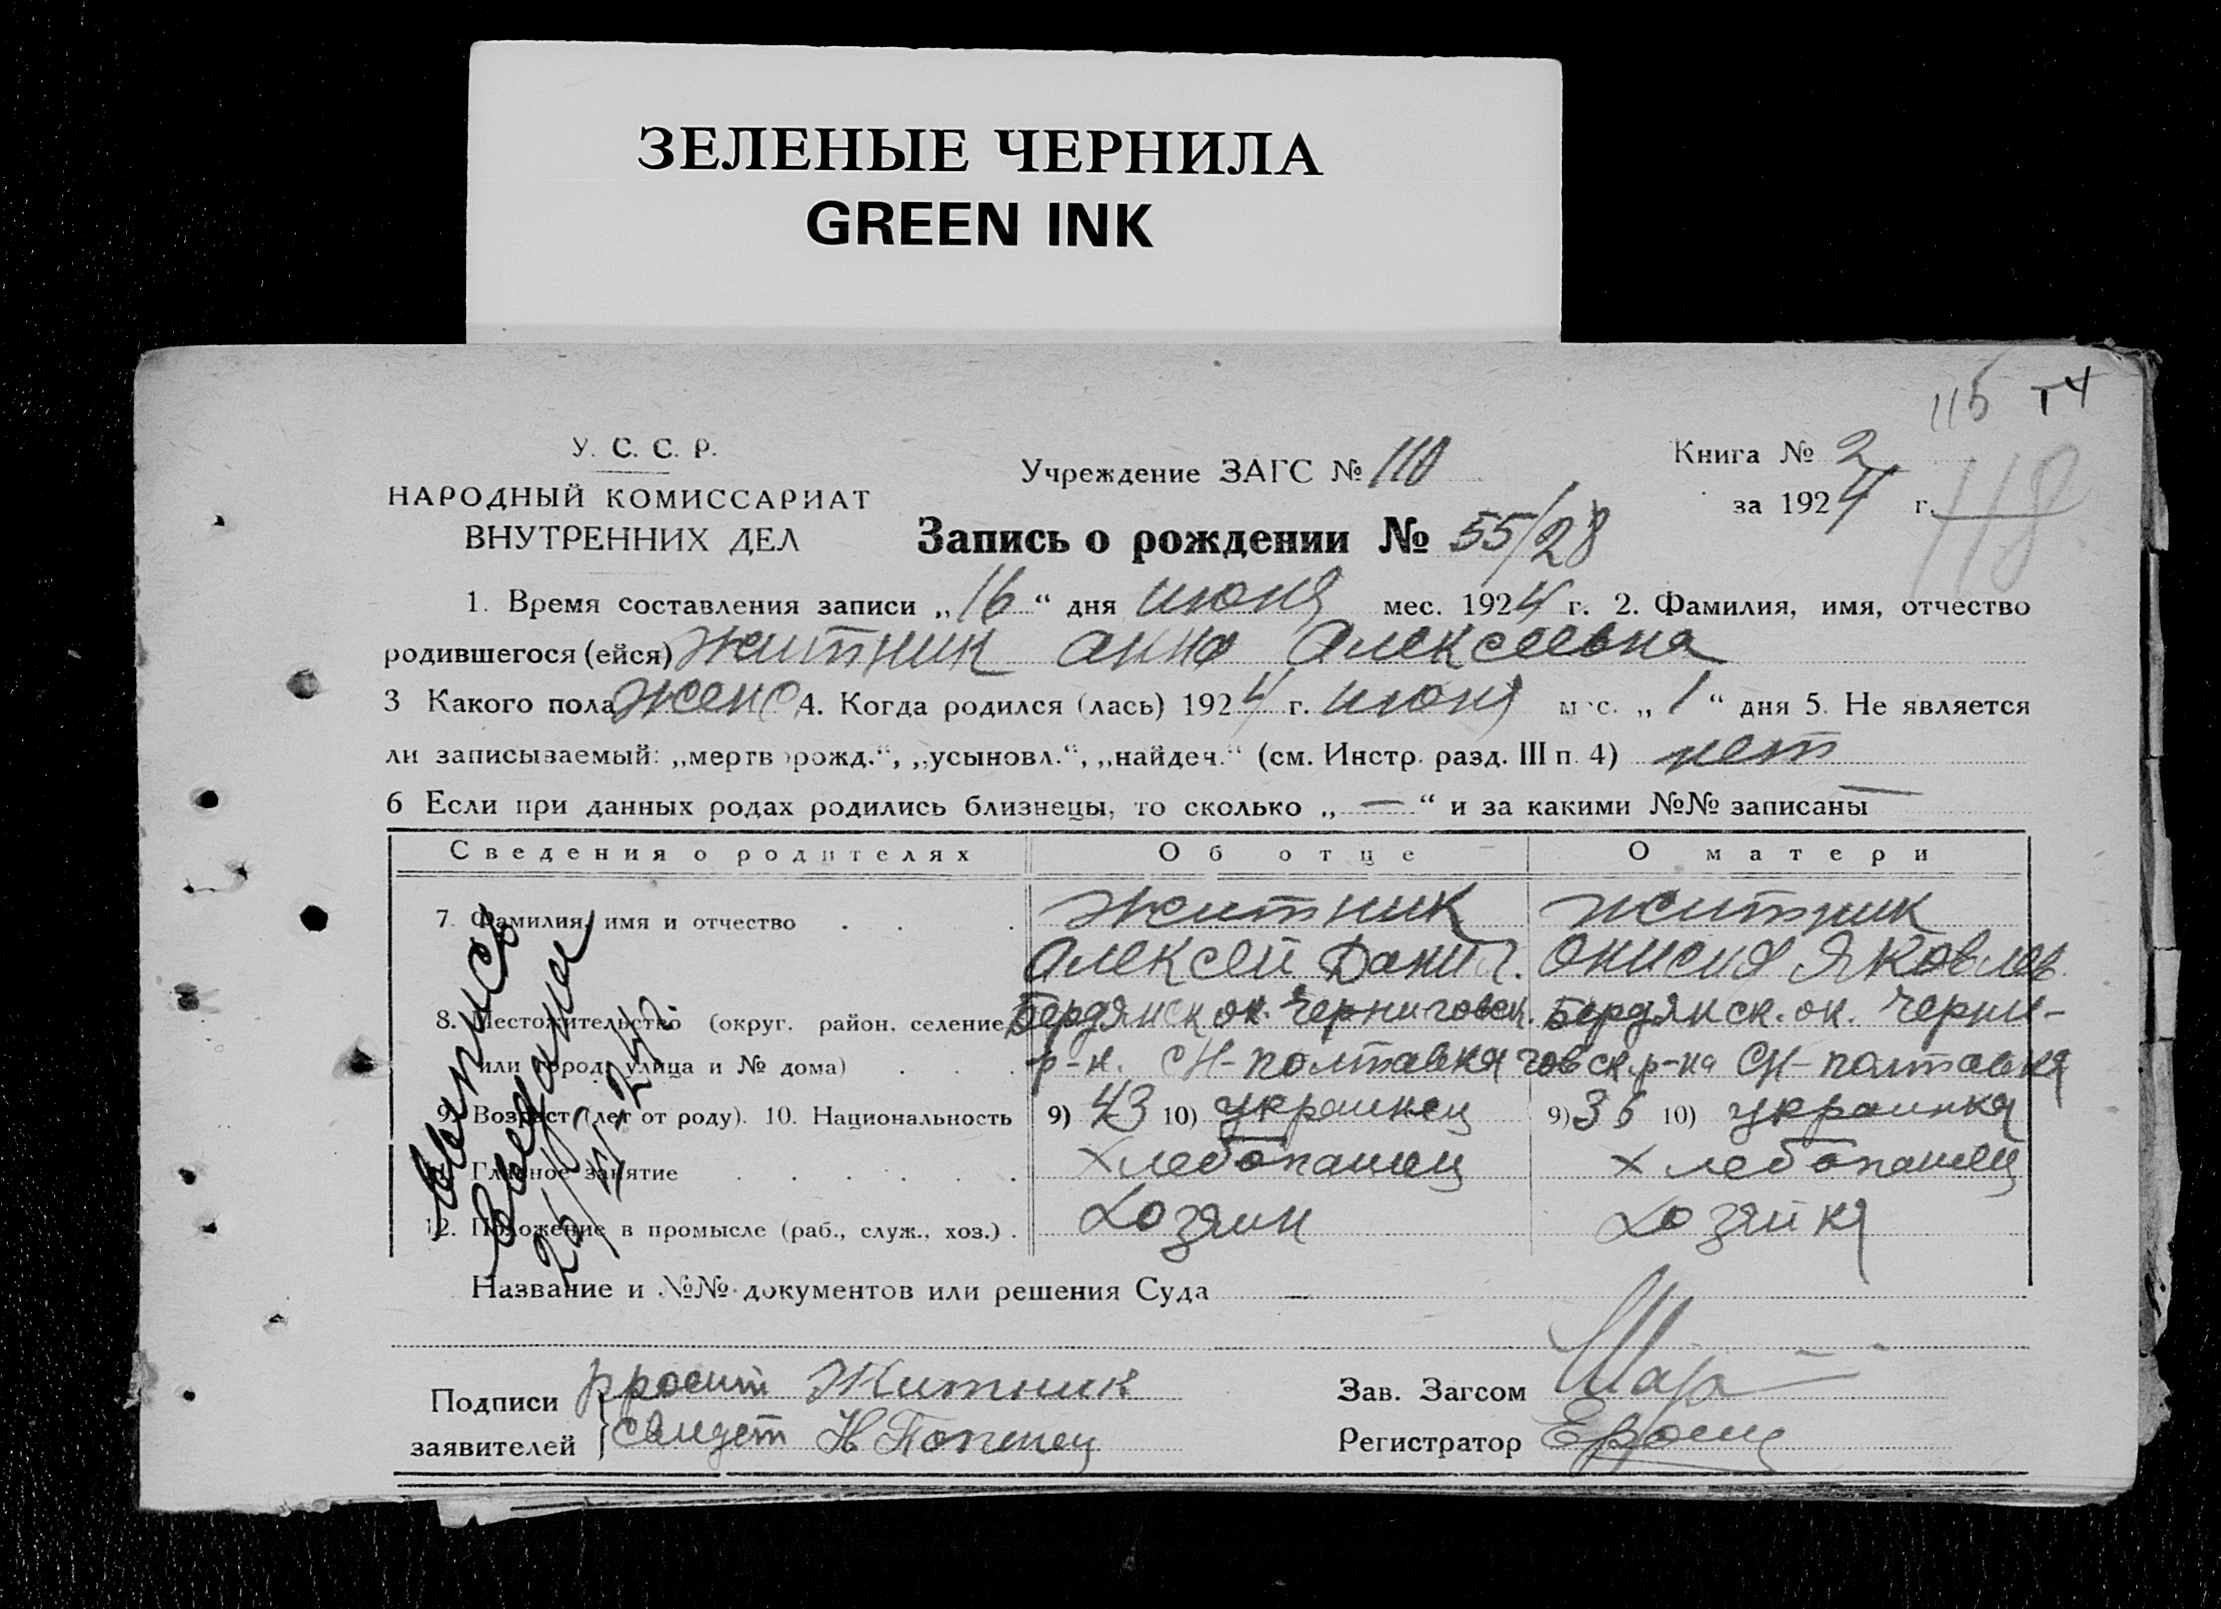 ЗЕЛЕНЫЕ ЧЕРНИЛА
GREEN INK
115 т4
118
У. С. С. Р.
НАРОДНЫЙ КОМИССАРИАТ
ВНУТРЕННИХ ДЕЛ
Учреждение ЗАГС № 110
Книга № 2
за 1924 г.
Запись о рождении № 55/28
1. Время составления записи „16“ дня июня мес. 1924 г. 2. Фамилия, имя, отчество
родившегося (ейся) Житник Анна Алексеевна
3 Какого пола женс 4. Когда родился (лась) 1924 г. июня мес. „1“ дня 5. Не является
ли записываемый: „мертворожд.“, „усыновл.“, „найден.“ (см. Инстр. разд. III п. 4) нет
6 Если при данных родах родились близнецы, то сколько „—“ и за какими №№ записаны —
Сведения о родителях Об отце О матери
7. Фамилия, имя и отчество Житник Житник
Алексей Данил. Анисия Яковлев
8. Местожительство (округ. район, селение Бердянск ок. Черниговск. Бердянск. ок. Черни-
или город, улица и № дома) р-н. с Н-полтавка говск. р-на с Н-полтавка
9. Возраст (лет от роду). 10. Национальность 9) 43 10) украинец 9) 36 10) украинка
Главное занятие Хлебопашец Хлебопашец
12. Положение в промысле (раб., служ., хоз.) Хозяин Хозяйка
Название и №№ документов или решения Суда —
Подписи
заявителей
Житник
свидет Н
Зав. Загсом Шар
Регистратор